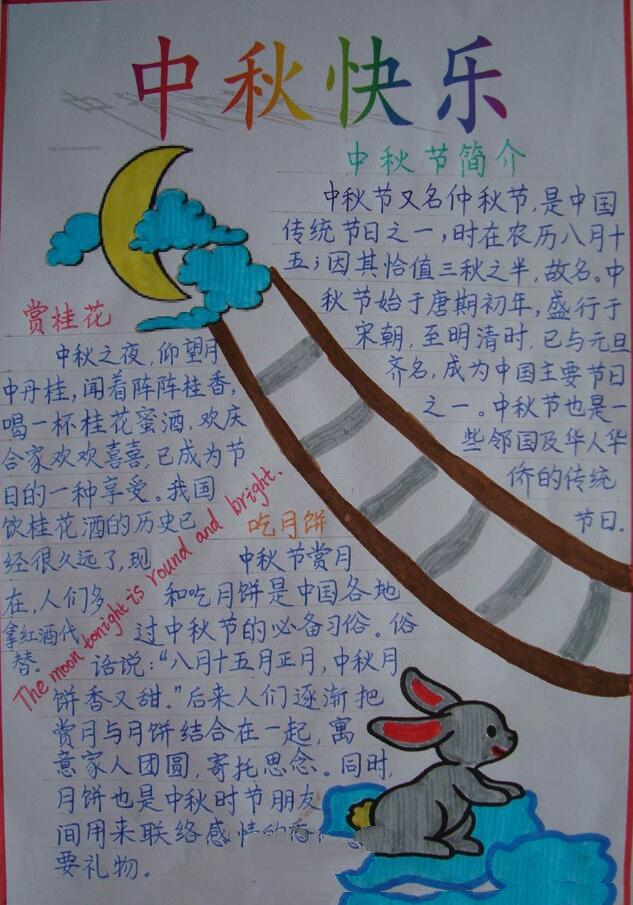 中秋快乐
中秋节简介
中秋节又名仲秋节，是中国
传统节日之一，时在农历八月十
五；因其恰值三秋之半，故名。中
秋节始于唐期初年，盛行于
宋朝，至明清时，已与元旦
齐名，成为中国主要节日
之一。中秋节也是一
些邻国及华人华
侨的传统
节日.
赏桂花
中秋之夜，仰望月
中丹桂，闻着阵阵桂香，
喝一杯桂花蜜酒，欢庆
合家欢欢喜喜，已成为节
日的一种享受。我国
饮桂花酒的历史已
经很久远了，现
在，人们多
拿红酒代
替。
The moon tonight is round and bright.
吃月饼
中秋节赏月
和吃月饼是中国各地
过中秋节的必备习俗。俗
话说：“八月十五月正月，中秋月
饼香又甜。”后来人们逐渐把
赏月与月饼结合在一起，寓
意家人团圆，寄托思念。同时，
月饼也是中秋时节朋友
间用来联络感情的
要礼物。